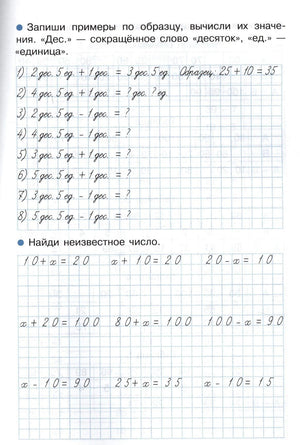 Запиши примеры по образцу, вычисли их значе-
ния. «Дес.» — сокращённое слово «десяток», «ед.» —
«единица».
1) 2 дес. 5 ед. + 1 дес. = 3 дес. 5 ед. Образец: 25 + 10 = 35
2) 4 дес. 5 ед. + 1 дес. = ? дес. ? ед.
3) 2 дес. 5 ед. - 1 дес. = ?
4) 4 дес. 5 ед. - 1 дес. = ?
5) 3 дес. 5 ед. + 1 дес. = ?
6) 5 дес. 5 ед. + 1 дес. = ?
7) 3 дес. 5 ед. - 1 дес. = ?
8) 5 дес. 5 ед. - 1 дес. = ?
Найди неизвестное число.
10 + x = 20 x + 10 = 20 20 - x = 10
x + 20 = 100 80 + x = 100 100 - x = 90
x - 10 = 90 25 + x = 35 x - 10 = 15